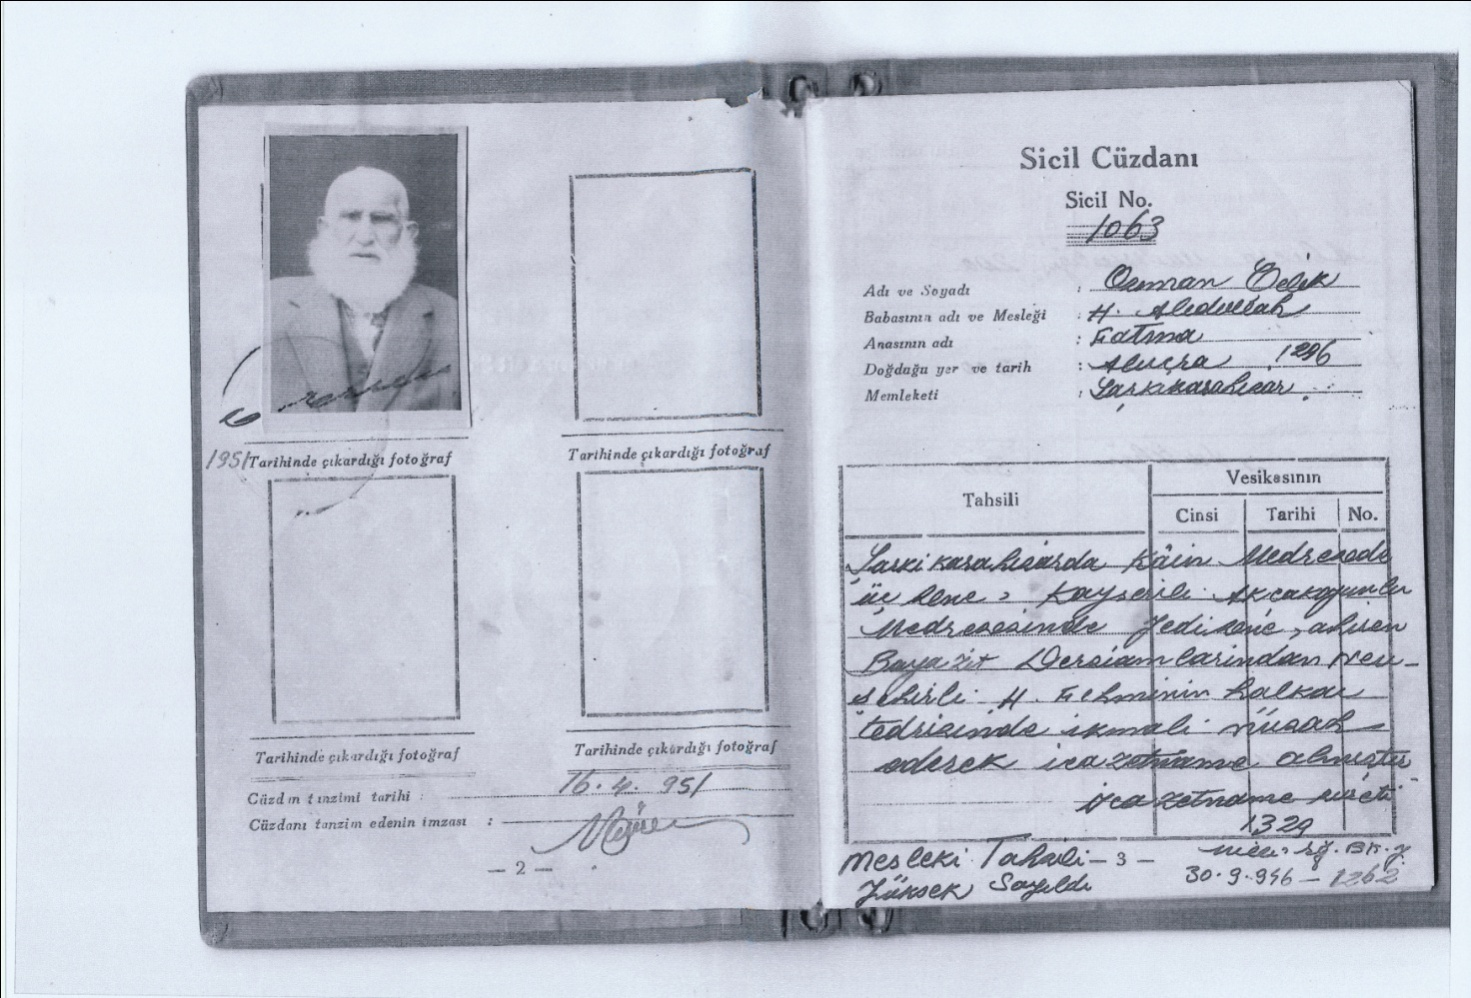 1951 Tarihinde çıkardığı fotoğraf
Tarihinde çıkardığı fotoğraf
Tarihinde çıkardığı fotoğraf
Tarihinde çıkardığı fotoğraf
Cüzdın tanzimi tarihi : 16.4.951
Cüzdanı tanzim edenin imzası :
— 2 —
Sicil Cüzdanı
Sicil No.
1063
Adı ve Soyadı : Osman Çelik
Babasının adı ve Mesleği : H. Abdullah
Anasının adı : Fatma
Doğduğu yer ve tarih : Alucra 1296
Memleketi : Şarkikarahisar
Tahsili
Vesikasının
Cinsi Tarihi No.
Şarkikarahisarda Kâin Medresede
üç sene, Kayserili Akçakoyunlu
Medresesinde Yedi sene, ahiren
Bayazit Dersiamlarindan Nev-
şehirli H. Fehminin halkai
tedrisinde ikmali nüsah
ederek icazetname almıştır
icazetname sureti
1329
Mesleki Tahsili — 3 —
Yüksek Sayıldı
30.9.946 – 1262